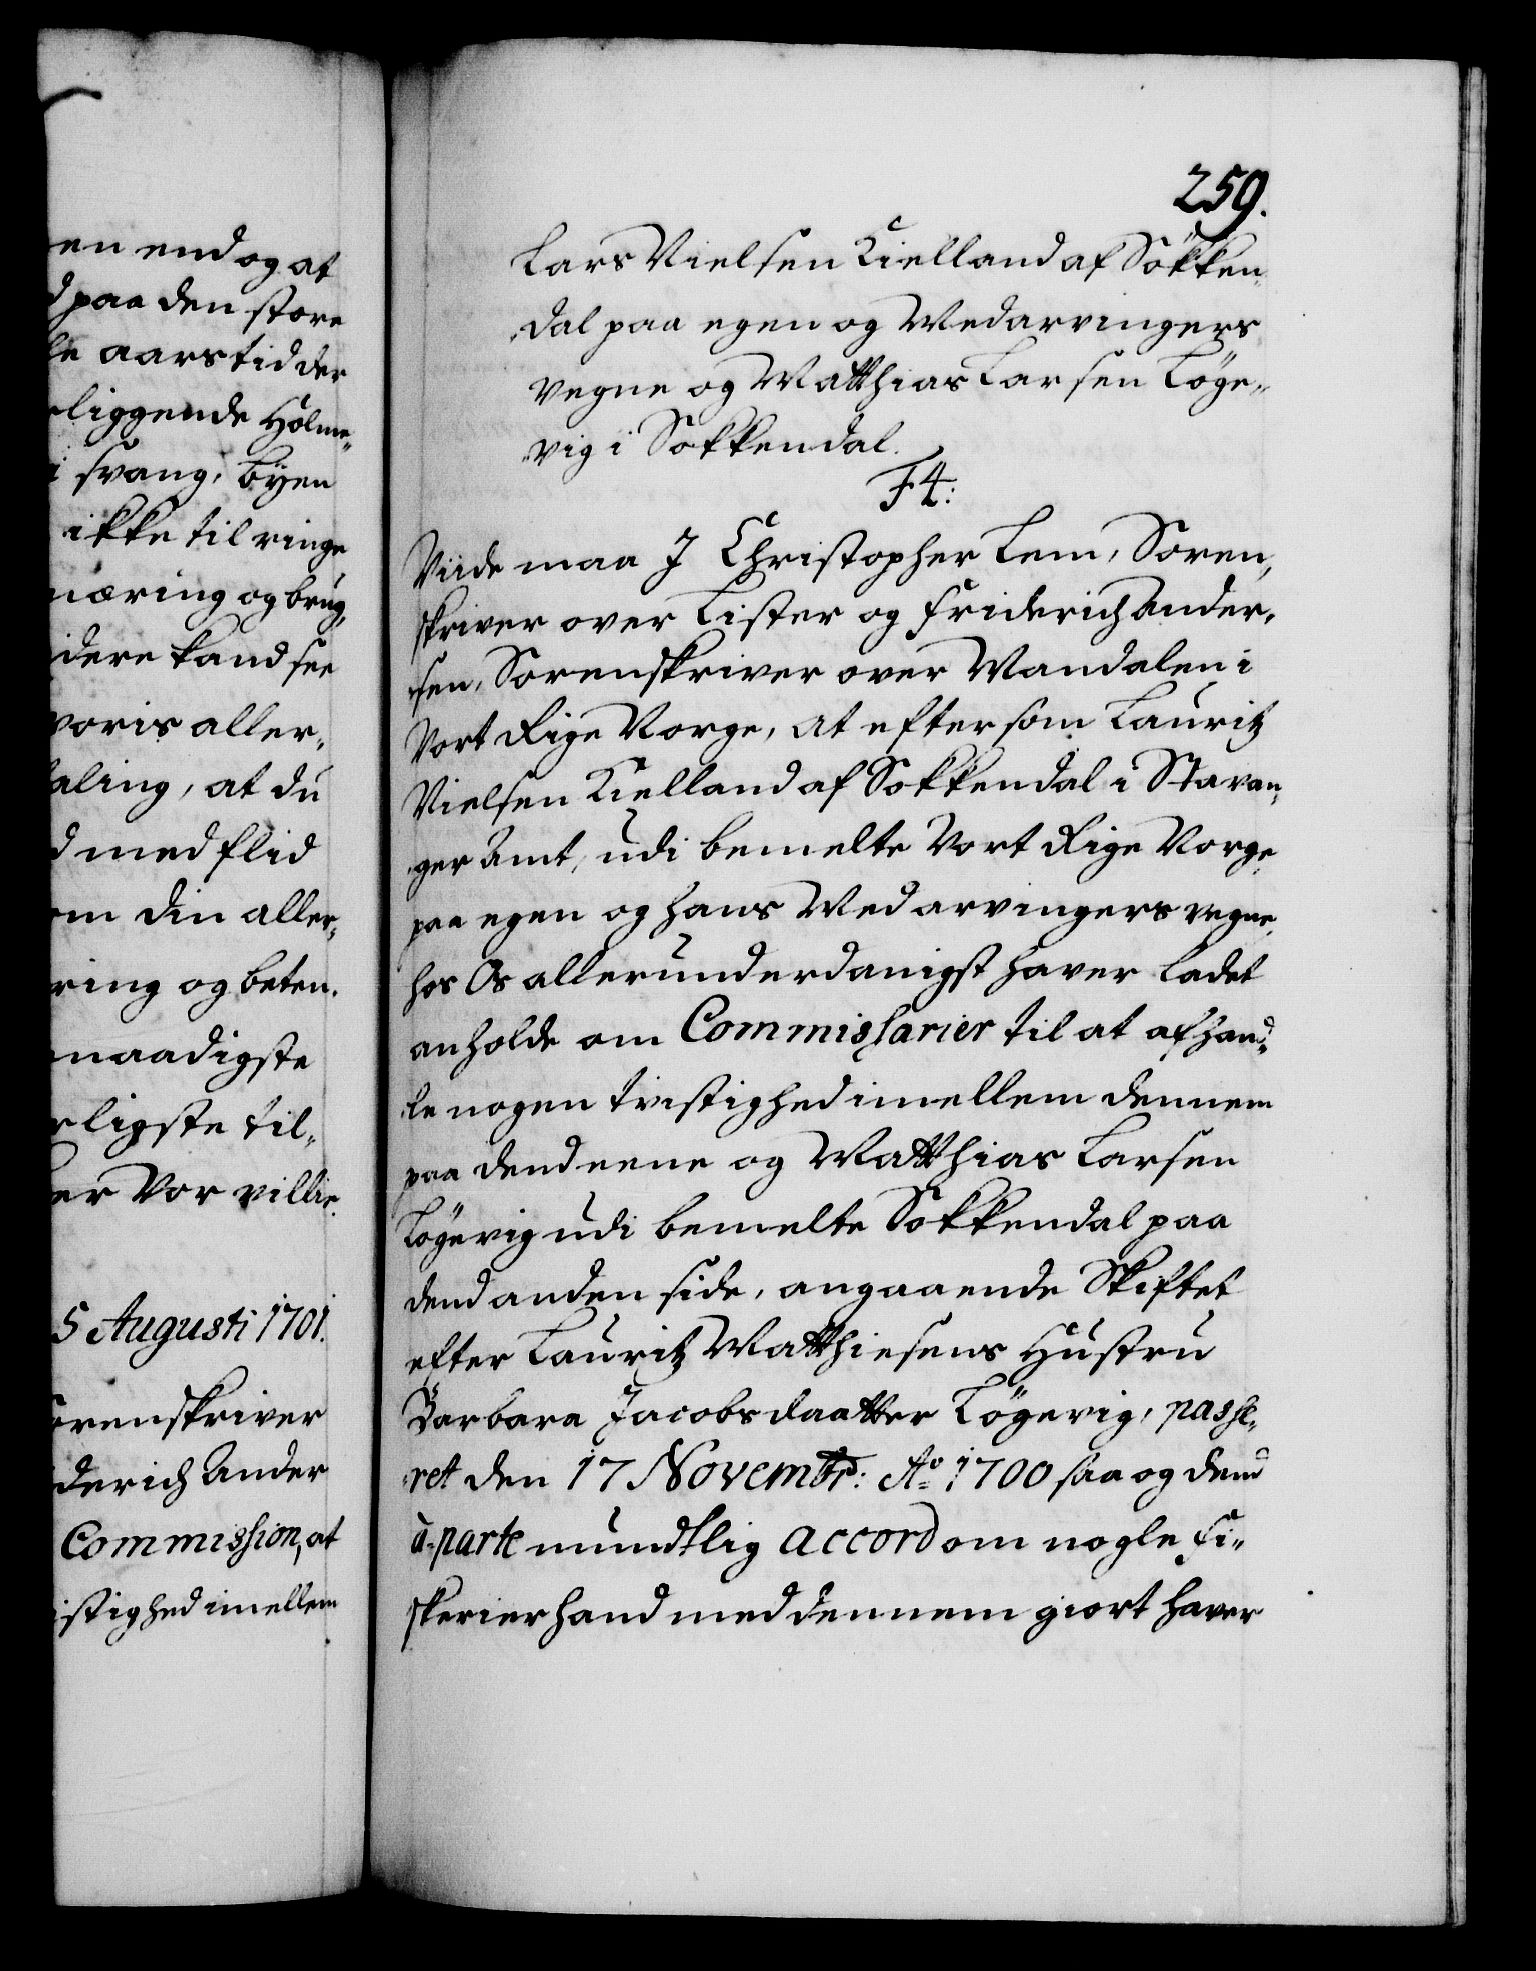 en end og at
d paa den store
le aarstid der
rliggende Holme„
i svang, byen
ikke til ringe
næring og brug,
idere kand see
voris aller„
aling, at du
d med flid
om din aller„
ring og beten„
naadigste
rligste til„
er Vor villie.
5 Augusti 1701.
orenskriver
iderich Ander
Commission, at
istighed imellem
259.
Lars Nielsen Kielland af Sökken„
„dal paa egen og Medarvingers
Vegne og Matthias Larsen Löge„
„vig i Sokkendal.
F4:
Viide maa J Christopher Lem, Soren„
skriver over Lister og Friderich Ander„
„sen, Sorenskriver over Mandalen i
Vort Rige Norge, at eftersom Lauritz
Nielsen Kielland af Sokkendal i Stavan„
„ger Amt, udi bemelte Vort Rige Norge
paa egen og hans Medarvingers vegne,
hos Os allerunderdanigst haver ladet
anholde om Commissarier til at afhand„
„le nogen tvistighed imellem dennem
paa dend eene og Matthias Larsen
Lögevig udi bemelte Sokkendal paa
dend anden side, angaaende Skiftet
efter Lauritz Matthiesens Hustru
Barbara Jacobsdaatter Lögevig, passe„
„ret den 17 Novembr: Ao 1700 saa og dend
à parte mundtlig accord om nogle Fi„
skerier hand med dennem giort haver